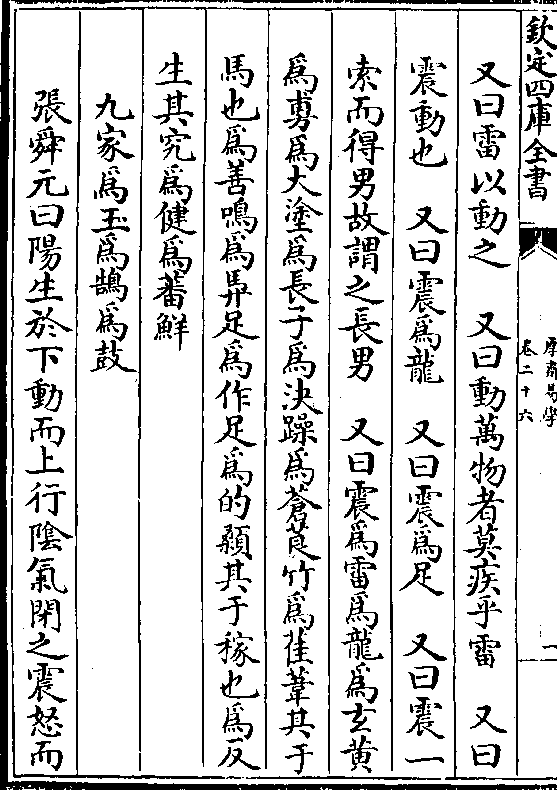 欽定四庫全書
厚齋易學
卷二十六
又曰雷以動之　又曰動萬物者莫疾乎雷　又曰
震動也　又曰震爲龍　又曰震爲足　又曰震一
索而得男故謂之長男　又曰震爲雷爲龍爲玄黄
爲旉爲大塗爲長子爲決躁爲蒼筤竹爲萑葦其于
馬也爲善鳴爲馵足爲作足爲的顙其于稼也爲反
生其究爲健爲蕃鮮
九家爲玉爲鵠爲鼓
張舜元曰陽生於下動而上行陰氣閉之震怒而